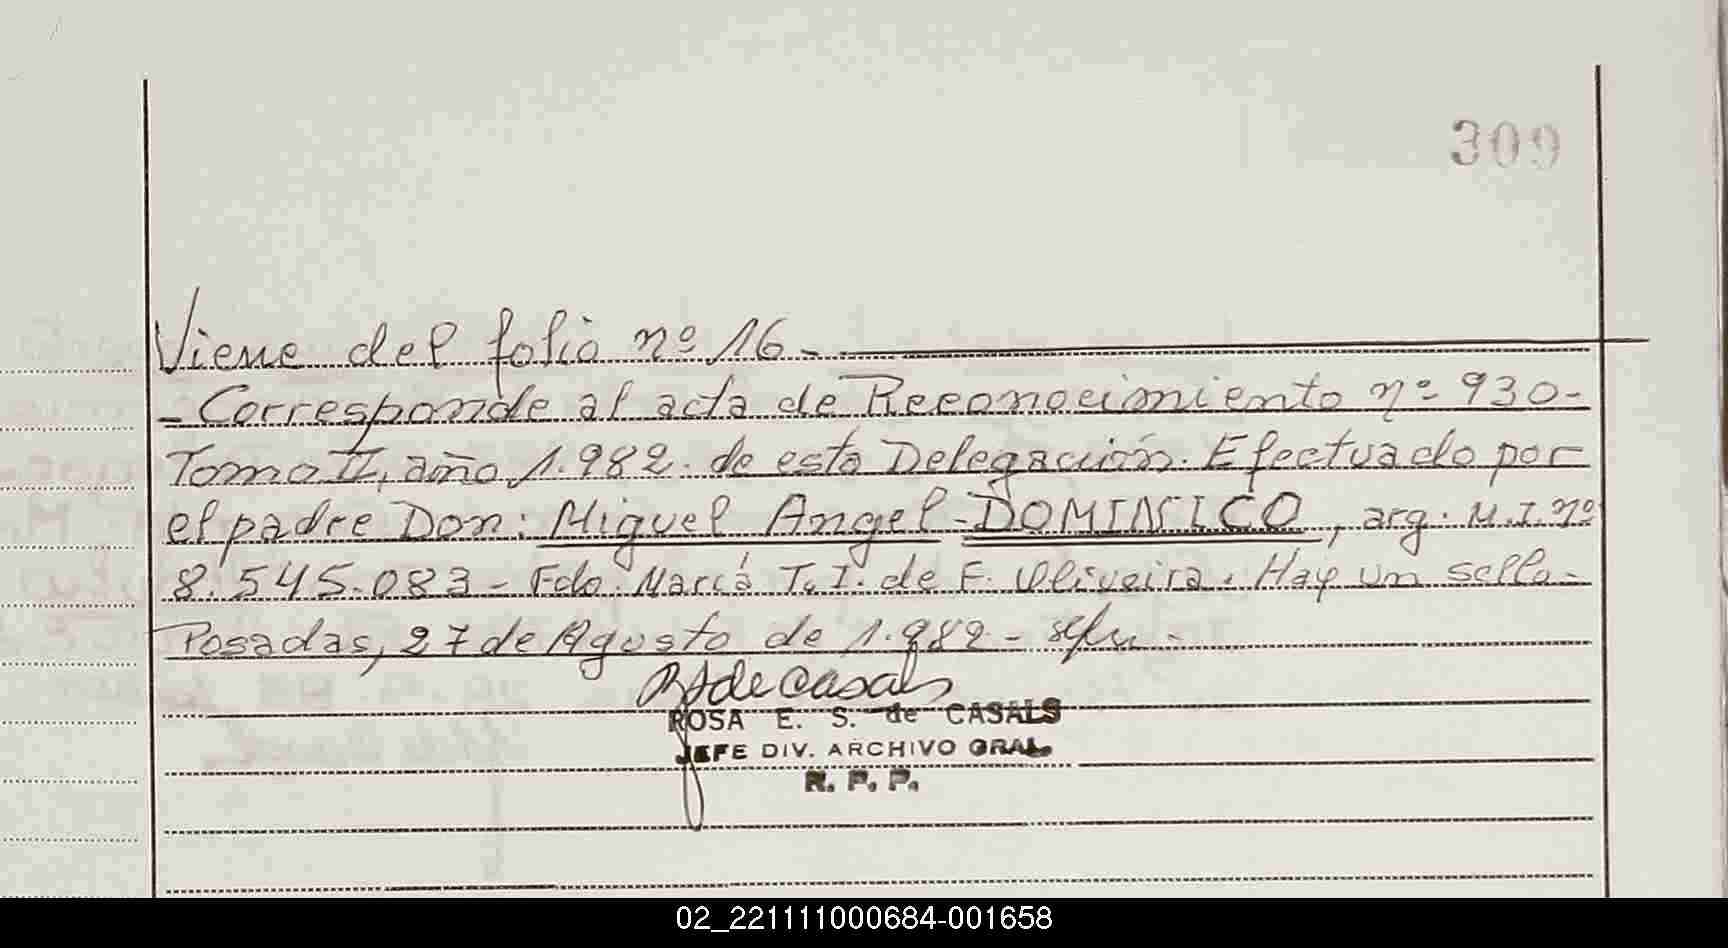 309
Viene del folio nº 16-
- Corresponde al acta de Reconocimiento nº 930-
Tomo II, año 1.982. de esta Delegación. Efectuado por
el padre Don: Miguel Angel-DOMINICO, arg. M.I. nº
8.545.083- Fdo. María T. I. de F. Oliveira. Hay un sello-
Posadas, 27 de Agosto de 1.982-
ROSA E. S. de CASALS
JEFE DIV. ARCHIVO GRAL.
R. P. P.
02_221111000684-001658